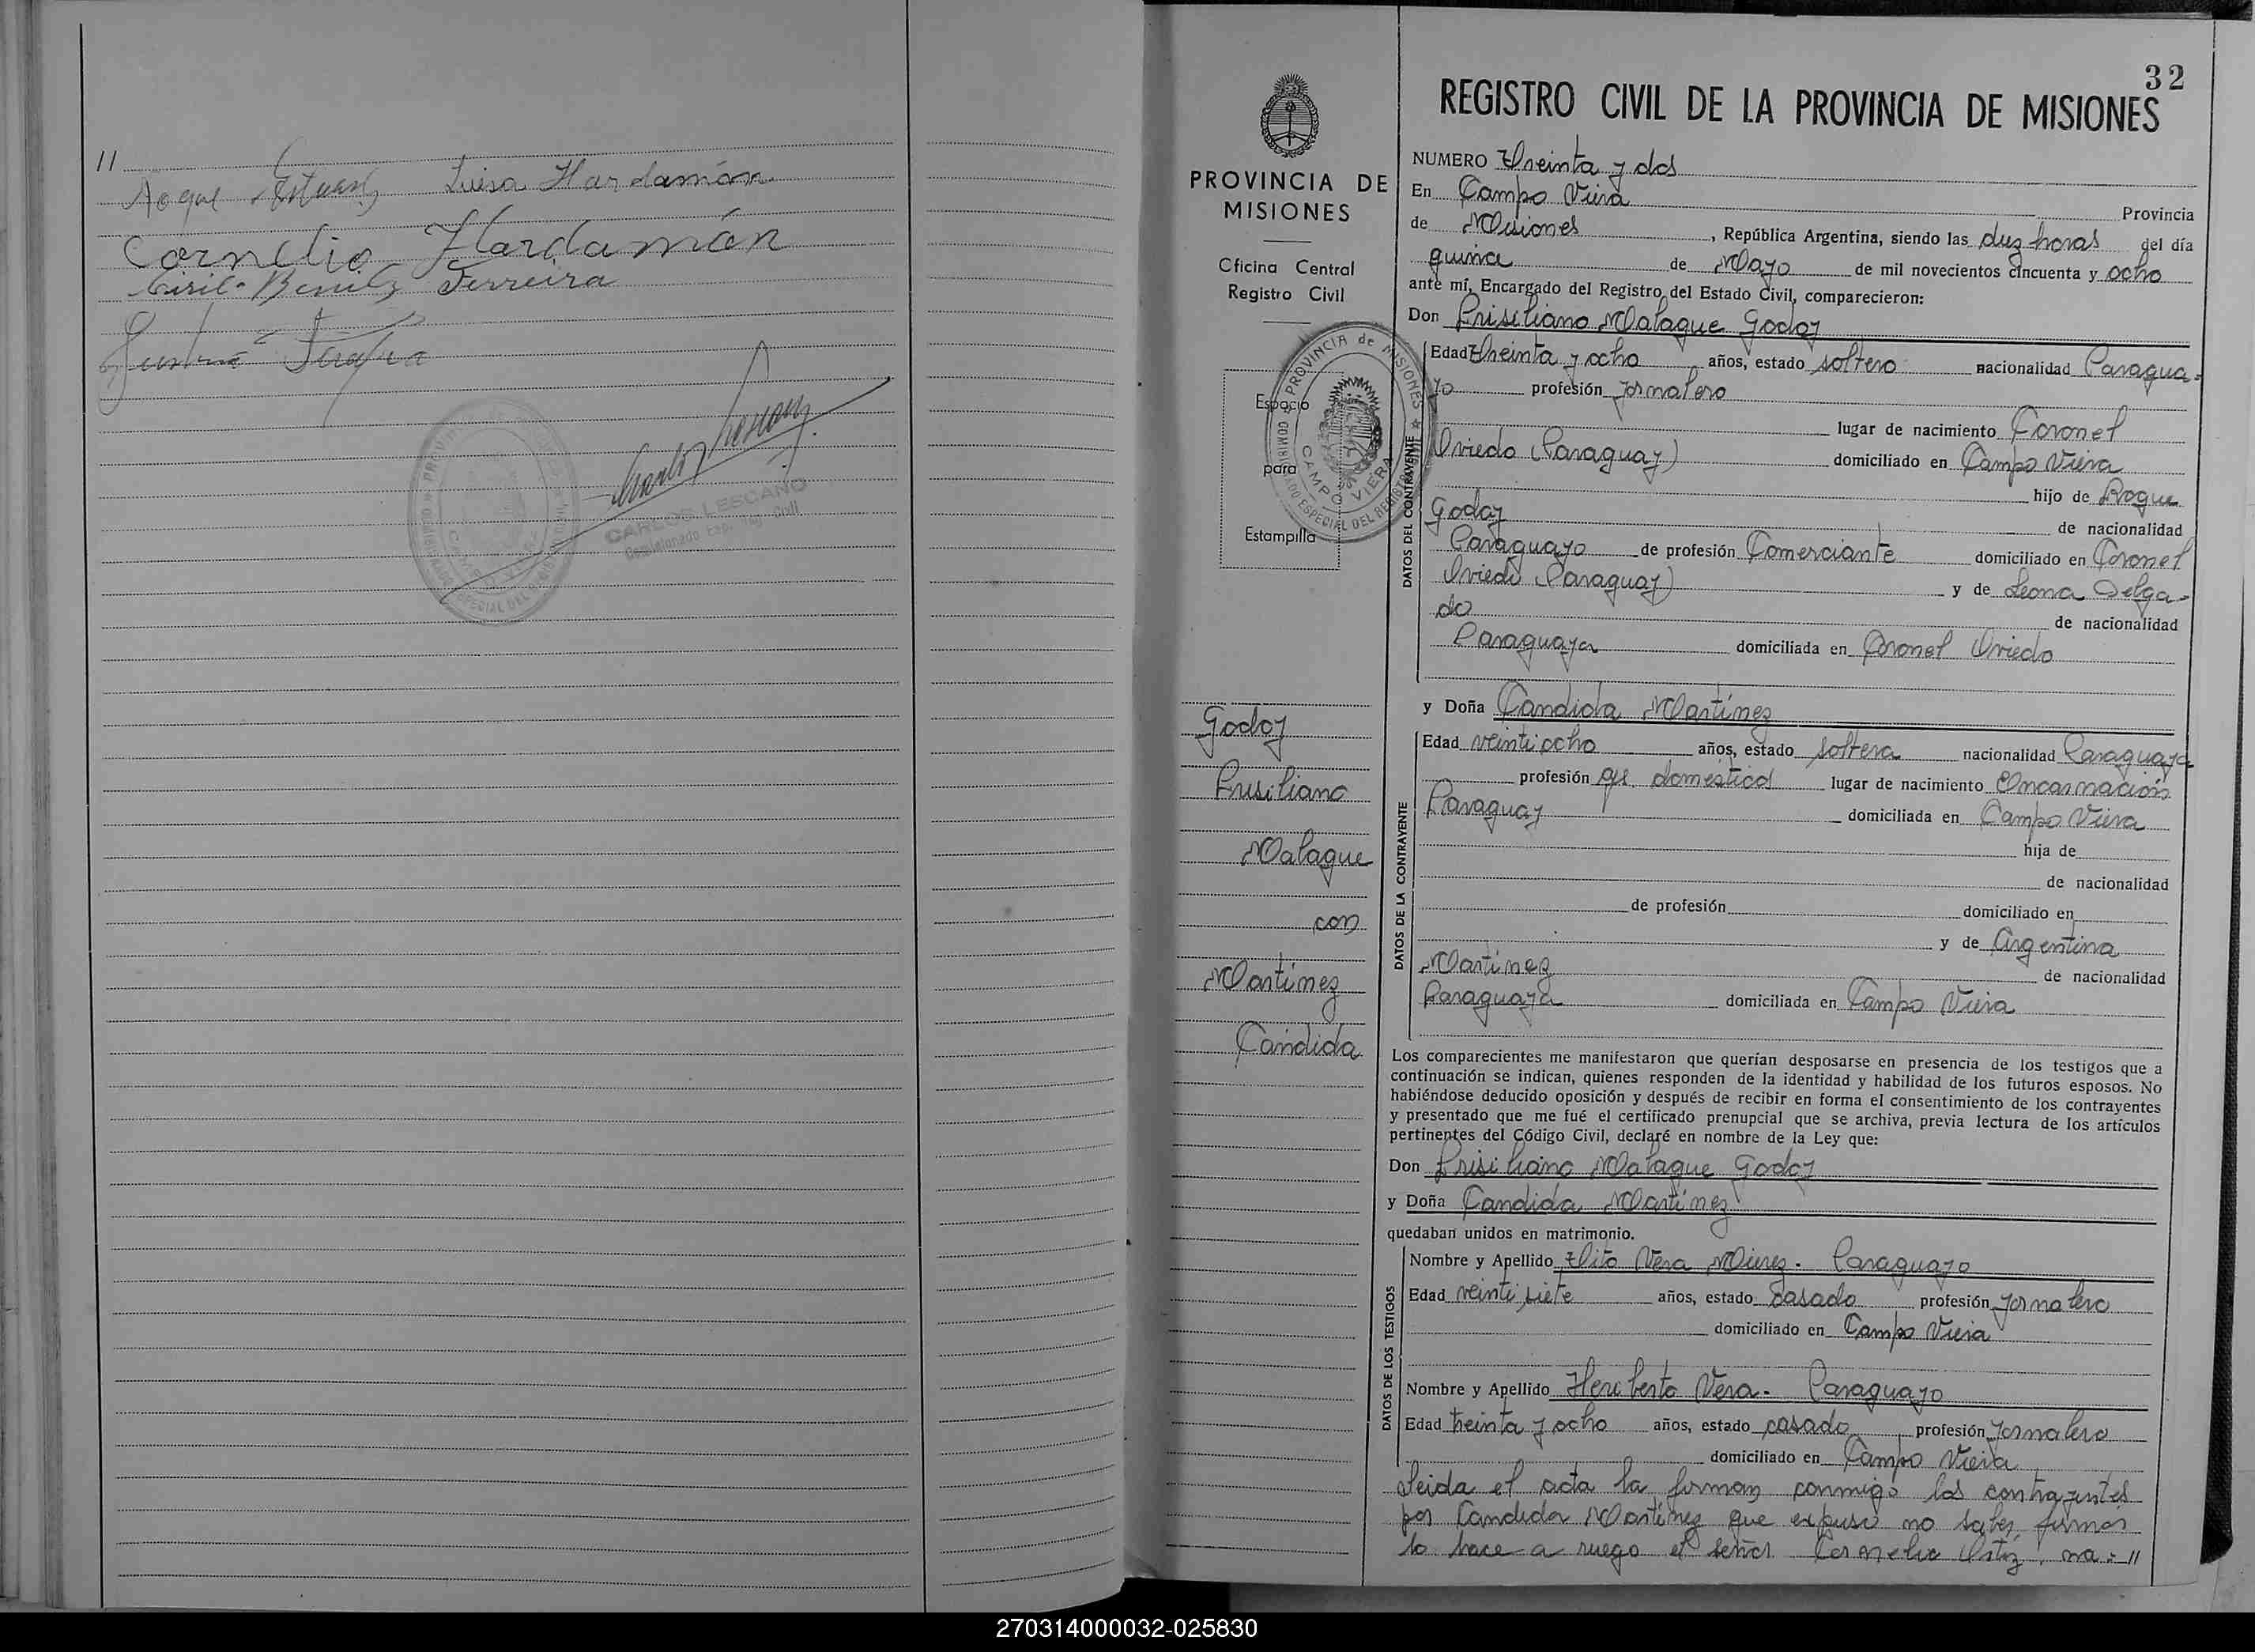 11
Roque Luisa Hardamán
Cornelio Hardamán
Benitez Ferreira
CARLOS LESCANO
Comisionado Esp. Reg. Civil
32
PROVINCIA DE
MISIONES
Oficina Central
Registro Civil
PROVINCIA de MISIONES
CAMPO VIERA
Espacio
para
Estampilla
Godoy
Prisiliano
Malaque
con
Martínez
Cándida
REGISTRO CIVIL DE LA PROVINCIA DE MISIONES
NUMERO Treinta y dos
En Campo Viera Provincia
de Misiones, República Argentina, siendo las diez horas del día
quince de Mayo de mil novecientos cincuenta y ocho
ante mí, Encargado del Registro del Estado Civil, comparecieron:
Don Prisiliano Malaque Godoy
DATOS DEL CONTRAYENTE
Edad Treinta y ocho años, estado soltero nacionalidad Paragua-
yo profesión Jornalero
lugar de nacimiento Coronel
Oviedo (Paraguay) domiciliado en Campo Viera
hijo de Roque
Godoy de nacionalidad
Paraguayo de profesión Comerciante domiciliado en Coronel
Oviedo (Paraguay) y de Leona Delga-
do de nacionalidad
Paraguaya domiciliada en Coronel Oviedo
y Doña Candida Martínez
DATOS DE LA CONTRAYENTE
Edad veintiocho años, estado soltera nacionalidad Paraguaya
profesión qs. domésticos lugar de nacimiento Encarnación
Paraguay domiciliada en Campo Viera
hija de
de nacionalidad
de profesión domiciliado en
y de Argentina
Martínez de nacionalidad
Paraguaya domiciliada en Campo Viera
Los comparecientes me manifestaron que querían desposarse en presencia de los testigos que a
continuación se indican, quienes responden de la identidad y habilidad de los futuros esposos. No
habiéndose deducido oposición y después de recibir en forma el consentimiento de los contrayentes
y presentado que me fué el certificado prenupcial que se archiva, previa lectura de los artículos
pertinentes del Código Civil, declaré en nombre de la Ley que:
Don Prisiliano Malaque Godoy
y Doña Candida Martínez
quedaban unidos en matrimonio.
DATOS DE LOS TESTIGOS
Nombre y Apellido Vera Paraguayo
Edad veintisiete años, estado casado profesión Jornalero
domiciliado en Campo Viera
Nombre y Apellido Heriberto Vera. Paraguayo
Edad treinta y ocho años, estado casado profesión Jornalero
domiciliado en Campo Viera
Leida el acta la firman conmigo los contrayentes
por Candida Martínez que expuso no saber firmar
lo hace a ruego el señor Cornelio Ortiz, ma= 11
270314000032-025830